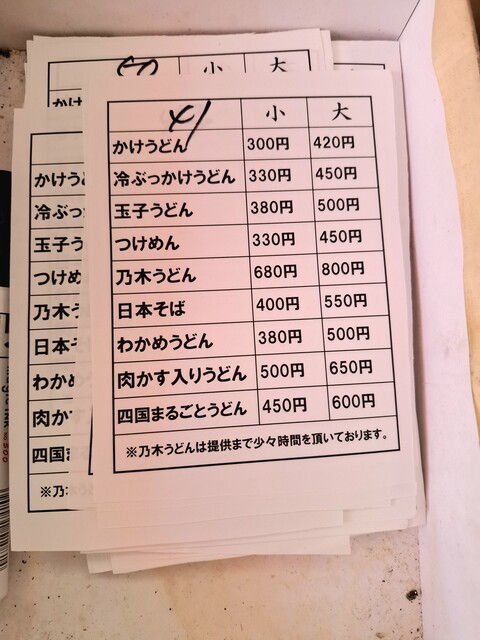 小 大
かけ
小 大
かけうどん 300円 420円
冷ぶっかけうどん 330円 450円
玉子うどん 380円 500円
つけめん 330円 450円
乃木うどん 680円 800円
日本そば 400円 550円
わかめうどん 380円 500円
肉かす入りうどん 500円 650円
四国まるごとうどん 450円 600円
※乃木うどんは提供まで少々時間を頂いております。
かけう
冷ぶっ
玉子う
つけめ
乃木う
日本そ
わかめ
肉かす
四国ま
※乃木